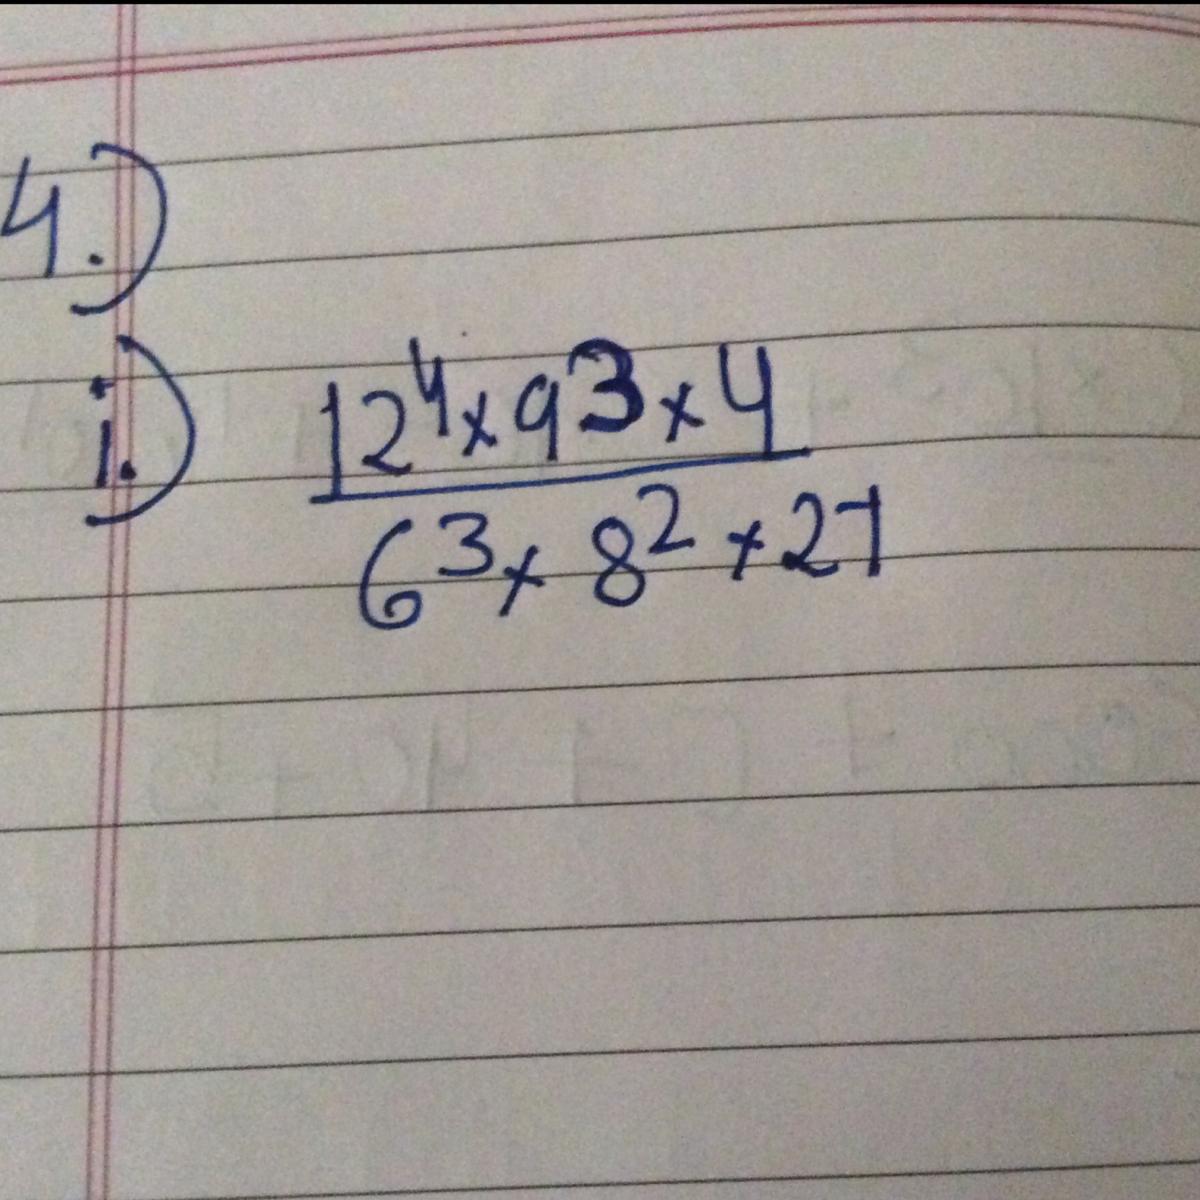 4.)
i.) 12⁴ × 9³ × 4
6³ × 8² × 27